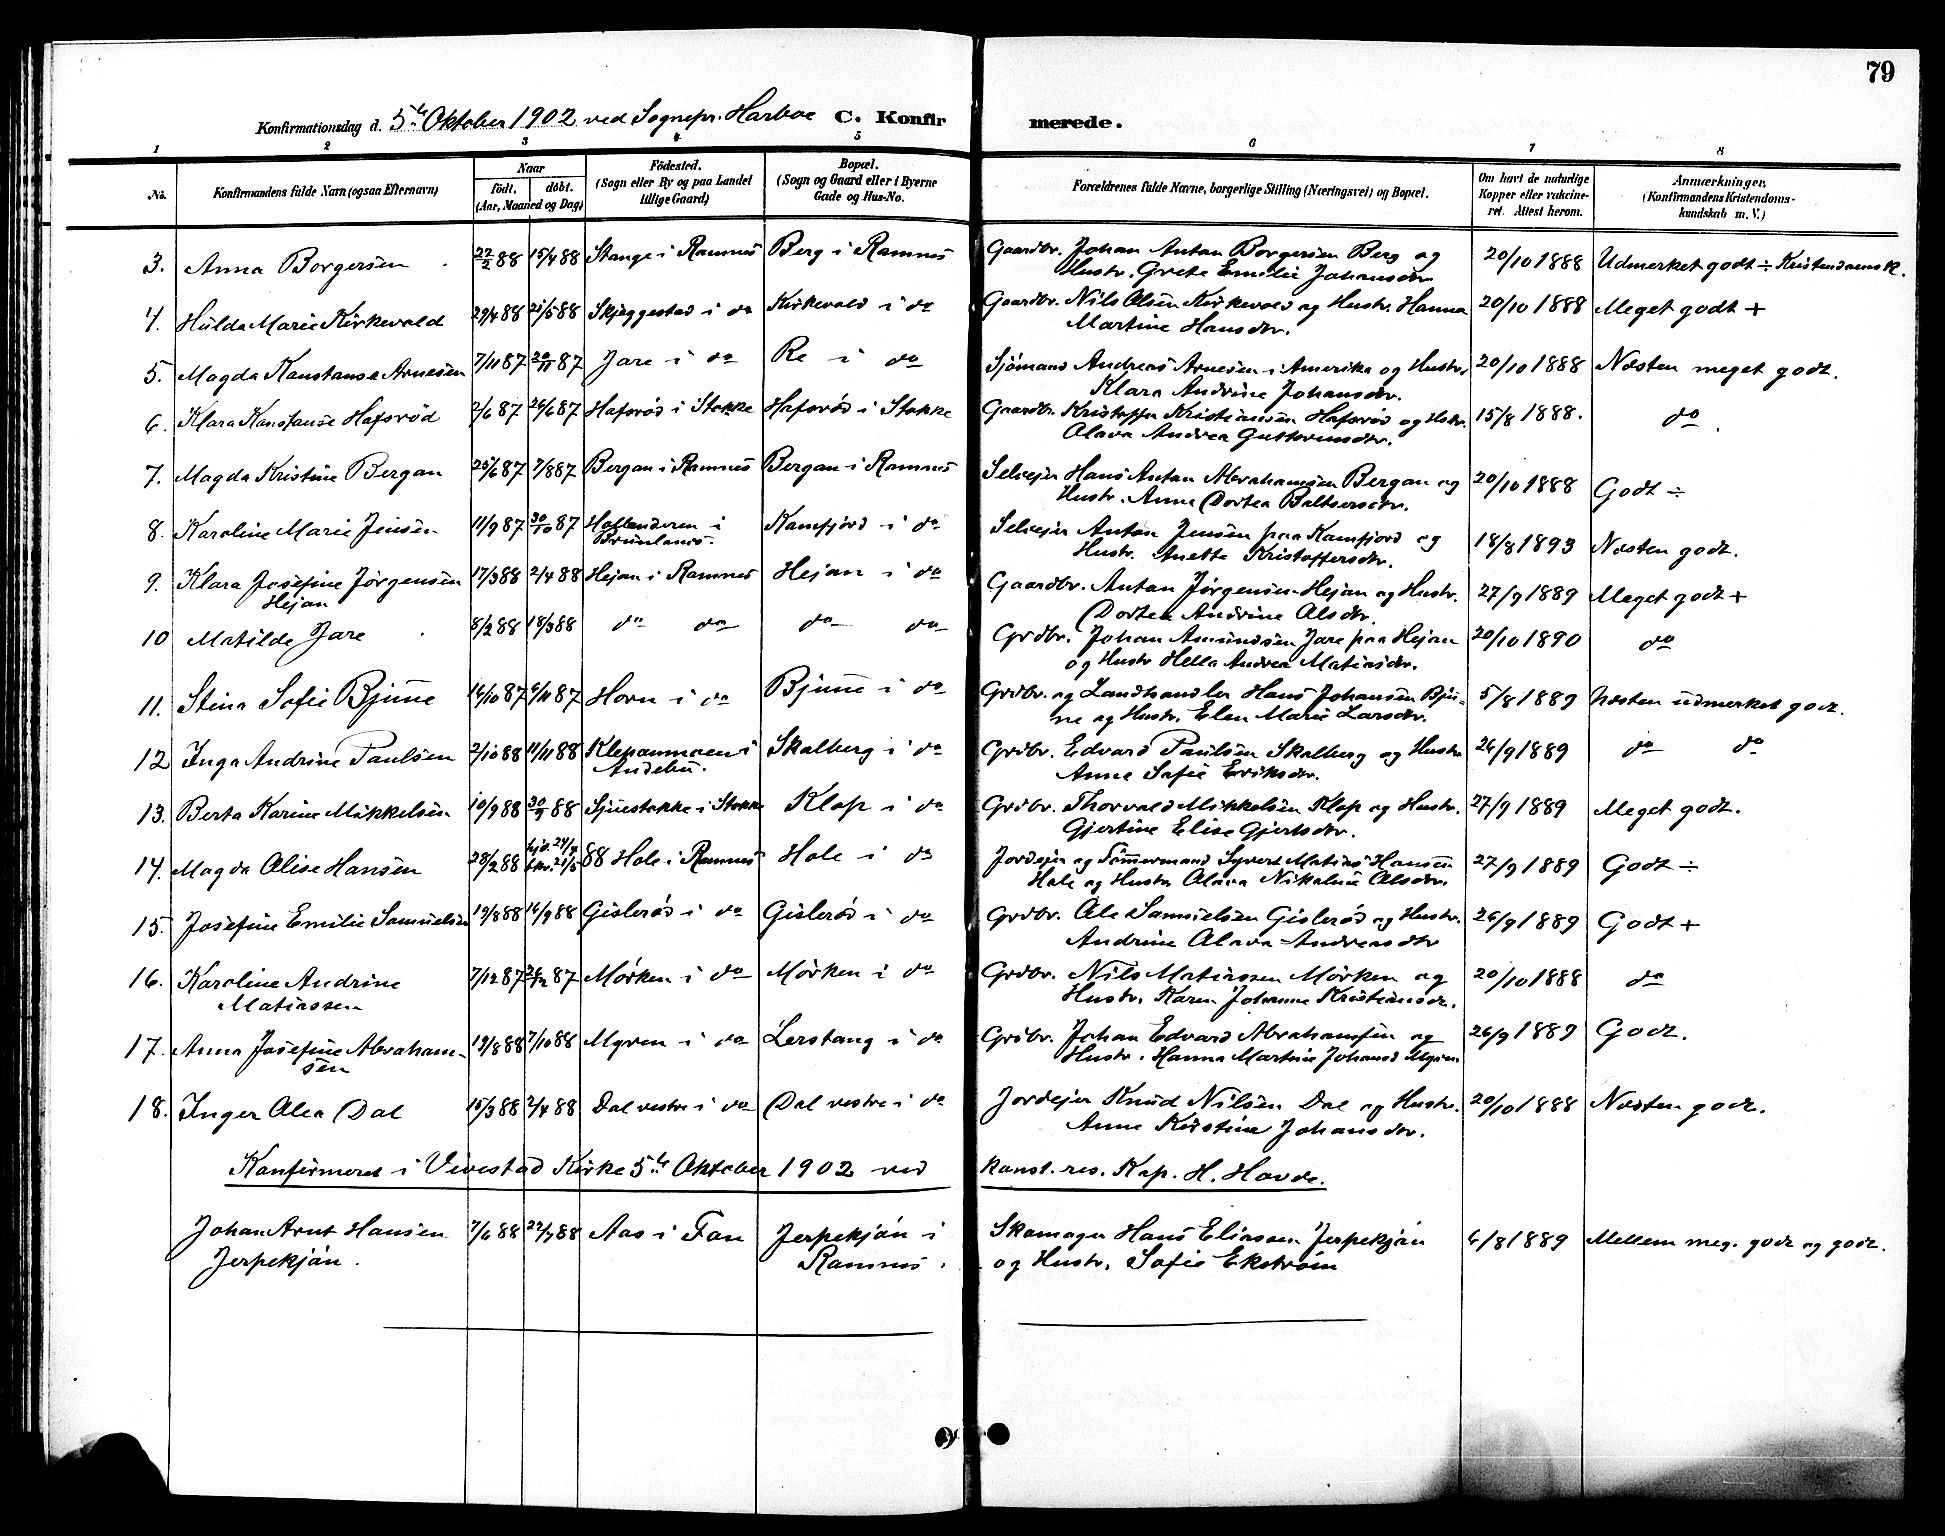 79
Konfirmationsdag d. 5te Oktober 1902 ved Sognepr. Harboe C. Konfirmerede.
1 2 3 4 5 6 7 8
No. Konfirmandens fulde Navn (ogsaa Efternavn) Naar født, døbt. (Aar, Maaned og Dag) Födested. (Sogn eller By og paa Landet tillige Gaard) Bopæl. (Sogn og Gaard eller i Byerne Gade og Hus-No. Forældrenes fulde Navne, borgerlige Stilling (Næringsvei) og Bopæl. Om havt de naturlige Kopper eller vakcineret. Attest herom. Anmærkninger, (Konfirmandens Kristendomskundskab m. V.)
3. Anna Borgersen 22/2 88 15/4 88 Stange i Ramnes Berg i Ramnes Gaardbr. Johan Anton Borgersen Berg og Hustr. Grete Emilie Johansdtr. 20/10 1888 Udmerket godt ÷ Kristendomsk.
4. Hulda Marie Kirkevold 29/4 88 21/5 88 Skjeggestad i do Kirkevold i do Gaardbr. Nils Olsen Kirkevold og Hustr. Hanna Martine Hansdtr. 20/10 1888 Meget godt +
5. Magda Konstanse Arnesen 7/11 87 20/11 87 Jare i do Re i do Sjömand Andreas Arnesen i Amerika og Hustr. Klara Andrine Johansdtr. 20/10 1888 Næsten meget godt.
6. Klara Konstanse Hafsrød 2/6 87 26/6 87 Hafsrød i Stokke Hafsrød i Stokke Gaardbr. Kristoffer Kristiansen Hafsrød og Hstr. Olava Andrea Guttormsdtr. 15/8 1888. do
7. Magda Kristine Bergan 25/6 87 7/8 87 Bergan i Ramnes Bergan i Ramnes Selvejer Hans Anton Abrahamsen Bergan og Hustr. Anne Dortea Baltsersdtr. 20/10 1888 Godt ÷
8. Karoline Marie Jensen 11/9 87 30/10 87 Hollenderen i Brunlanes. Kamfjord i do Selvejer Anton Jensen paa Kamfjord og Hustr. Anette Kristoffersdtr. 18/8 1893 Næsten godt.
9. Klara Josefine Jørgensen Hejan 17/3 88 2/4 88 Hejan i Ramnes Hejan i do Gaardbr. Anton Jørgensen Hejan og Hustr. Dortea Andrine Olsdtr. 27/9 1889 Meget godt +
10 Matilde Jare 8/2 88 18/3 88 do do do do Grdbr. Johan Amundsen Jare paa Hejan og Hustr Hella Andrea Matiasdtr. 20/10 1890 do
11. Stina Sofie Bjune 16/10 87 6/11 87 Horn i do Bjune i do Grdbr. og Landhandler Hans Johansen Bjune og Hustr. Elen Marie Larsdtr. 5/8 1889 Næsten udmerket godt.
12 Inga Andrine Paulsen 2/10 88 11/11 88 Klepanmoen i Andebu. Skalberg i do Grdbr. Edvard Paulsen Skalberg og Hustr Anne Sofie Eriksdtr. 26/9 1889 do do
13. Berta Karine Mikkelsen 10/9 88 30/9 88 Sjuestokke i Stokke Klop i do Grdbr. Thorvald Mikkelsen Klop og Hustr. Gjertine Elise Gjertsdtr. 27/9 1889 Meget godt.
14. Magda Olise Hansen 28/2 88 hjd. 29/4 bkr. 21/5 88 Hole i Ramnes Hole i do Jordejer og Tömmermand Syvert Matias Hansen Hole og Hustr Olava Nikoline Olsdtr. 27/9 1889 Godt ÷
15. Josefine Emilie Samuelsen 19/8 88 16/9 88 Gislerød i do Gislerød i do Grdbr. Ole Samuelsen Gislerød og Hustr. Andrine Olava Andreasdtr 26/9 1889 Godt +
16. Karoline Andrine Matiassen 7/12 87 26/12 87 Mørken i do Mørken i do Grdbr. Nils Matiassen Mørken og Hustr. Karen Johanne Kristiansdr. 20/10 1888 do
17. Anna Josefine Abrahamsen 19/8 88 7/10 88 Myren i do Lerstang i do Grdbr. Johan Edvard Abrahamsen og Hustr. Hanna Martine Johansd Myren 26/9 1889 Godt.
18. Inger Olea Dal 15/3 88 2/4 88 Dal vestre i do Dal vestre i do Jordejer Knud Nilsen Dal og Hustr. Anne Kirstine Johansdtr. 20/10 1888 Næsten godt.
Konfirmeret i Vivestad Kirke 5te Oktober 1902 ved konst. res. Kap. H. Hovde.
Johan Arnt Hansen Jerpekjøn. 7/6 88 22/7 88 Aas i Fon Jerpekjøn i Ramnes. Skomager Hans Eliassen Jerpekjøn og Hustr. Sofie Ekström 6/8 1889 Mellem meg. godt og godt.